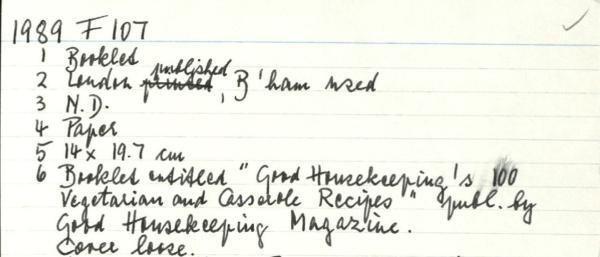 1989 F 107
1 Booklet
2 London published printed, B'ham used
3 N.D.
4 Paper
5 14 x 19.7 cm
6 Booklet entitled "Good Housekeeping's 100
Vegetarian and Casserole Recipes" publ. by
Good Housekeeping Magazine.
Cover loose.